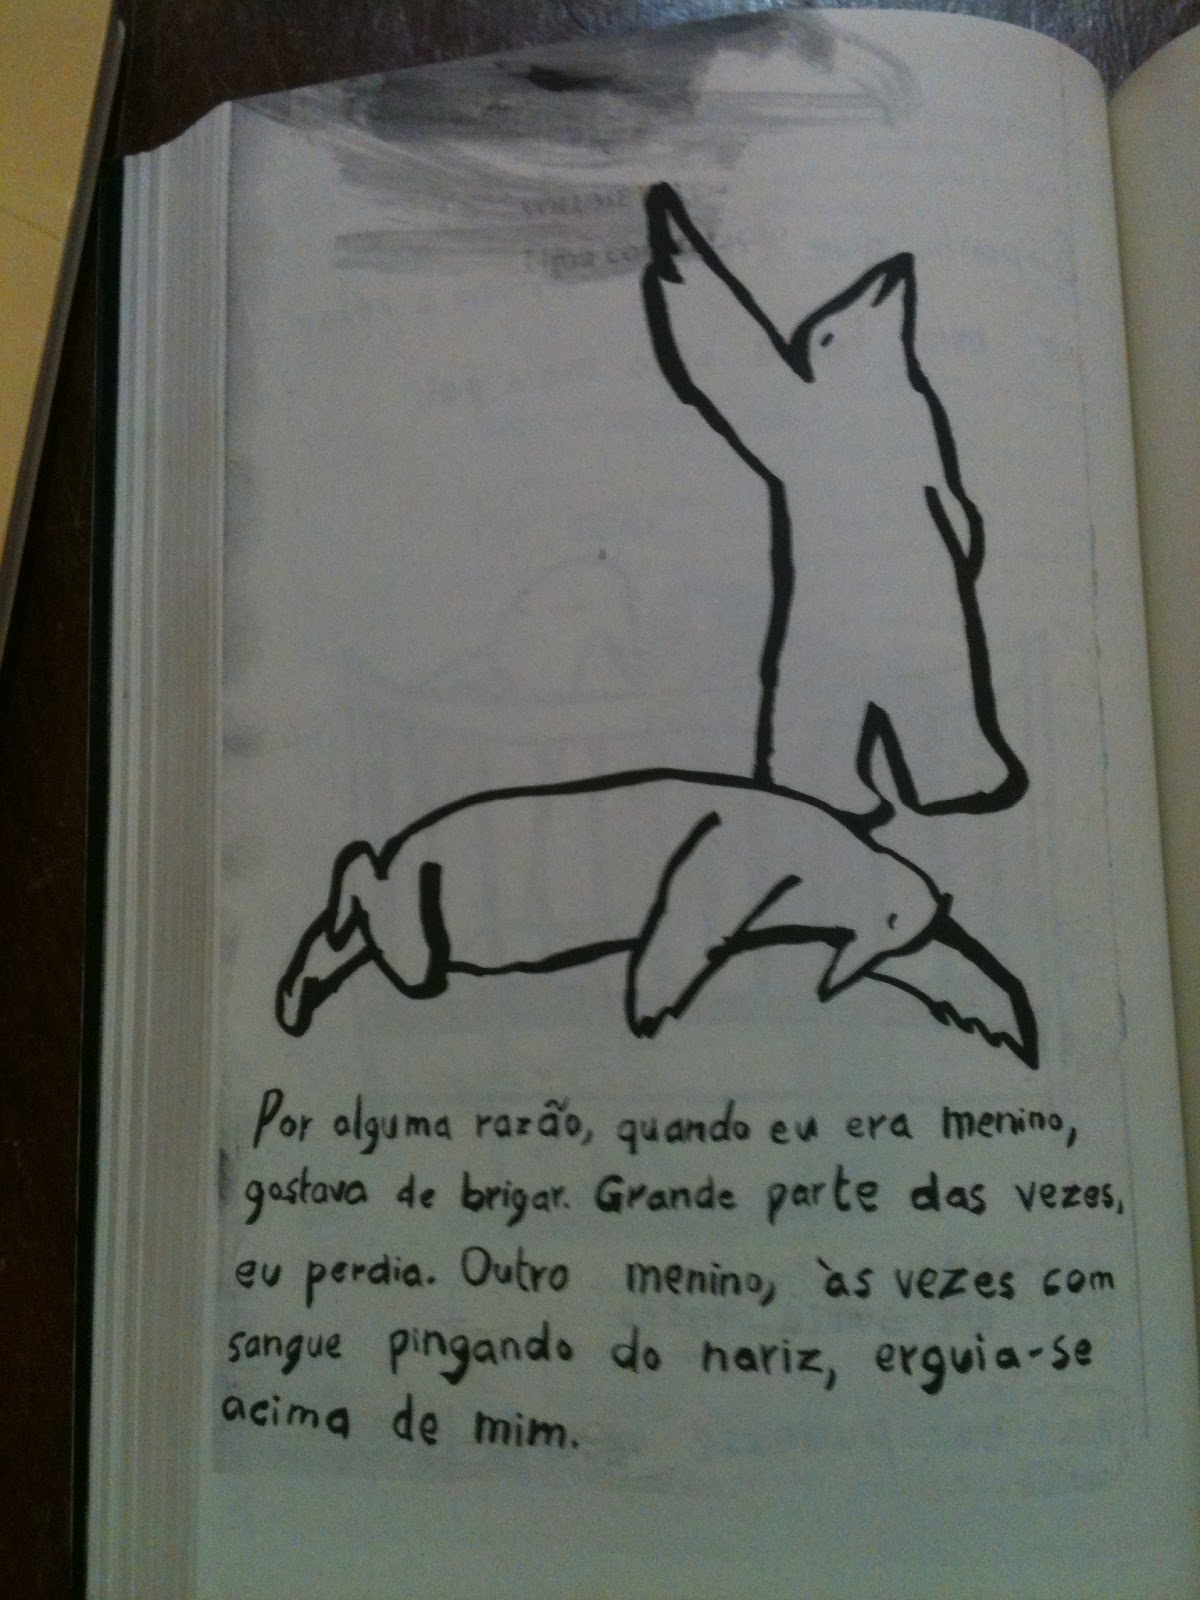 Por alguma razão, quando eu era menino,
gostava de brigar. Grande parte das vezes,
eu perdia. Outro menino, às vezes com
sangue pingando do nariz, erguia-se
acima de mim.